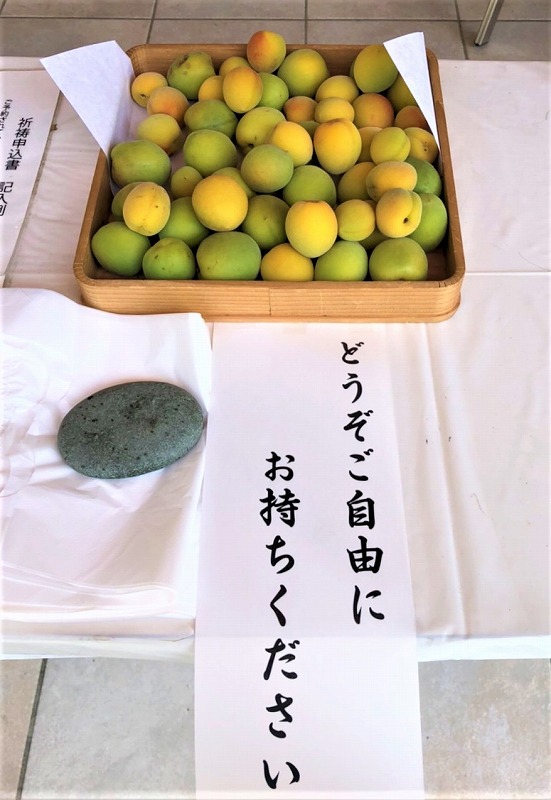 どうぞご自由に
お持ちください
祈祷申込書 記入例